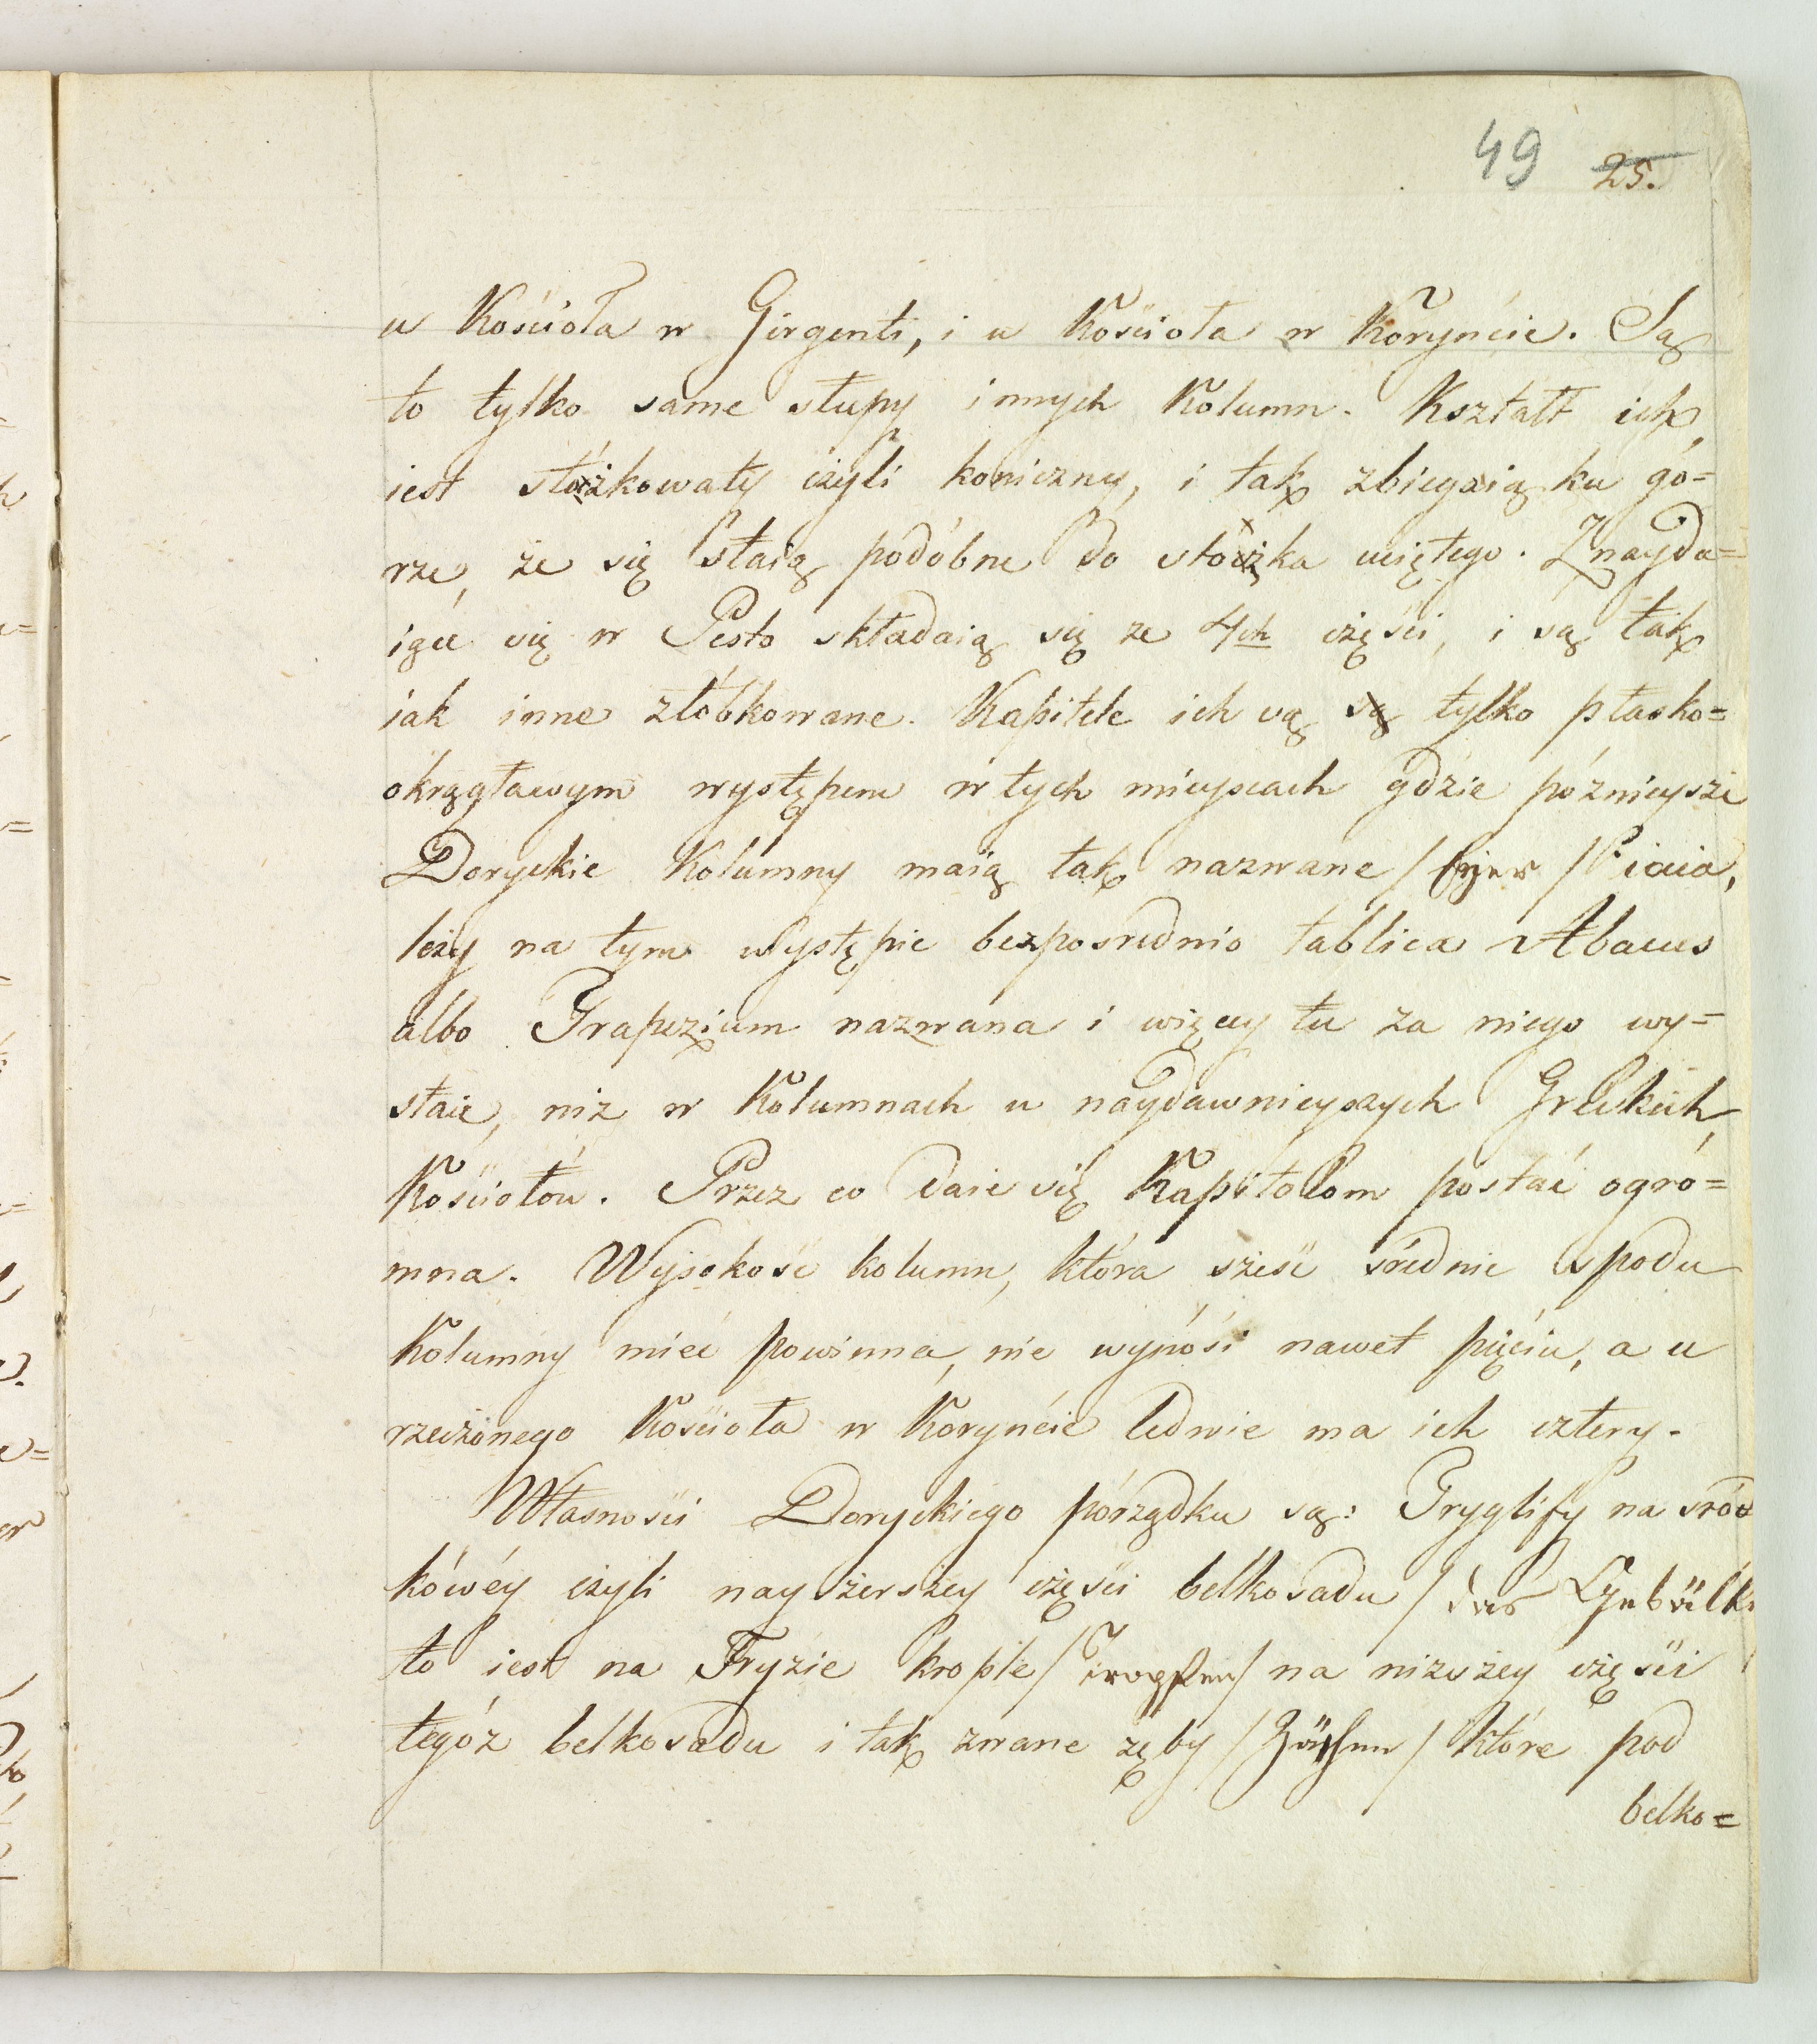 49 25.
u Kościoła w Girgenti, i u Kościoła w Koryńcie. Są
to tylko same słupy innych Kolumn. Kształt ich,
iest stożkowaty czyli koniczny, i tak zbiegaią ku gó=
rze, że się staią podóbne do stożka uciętego. Znayda=
iące się w Pesto składaią się ze 4ch częsci, i są tak
iak inne złóbkowane. Kapitele ich są są tylko płasko=
okrągławym występem w tych mieyscach gdzie póznieysze
Doryckie Kolumny maią tak nazwane / Eyer / Iaia,
leży na tym występie bezposrednio tablica Abacus
albo Trapezium nazwana i więcey tu za niego wy=
staie, niż w Kolumnach u naydawnieyszych Greckich,
Kościołów. Przez co daie się Kapitolom postać ogró=
mna. Wysokość kolumn, która sześć srednic spodu
Kolumny mieć powinna, nie wynósi nawet pięciu, a u
rzeczónego Kościoła w Koryńcie ledwie ma ich cztery.
Własności Doryckiego pórządku są: Tryglify na sród
kówéy czyli nayszerszey częsci belkosadu / das Gebälk
to iest na Fryzie krople / Tropfen / na niższey częsci
tegóż belkosadu i tak zwane zęby / Zähne / które pod
belko=